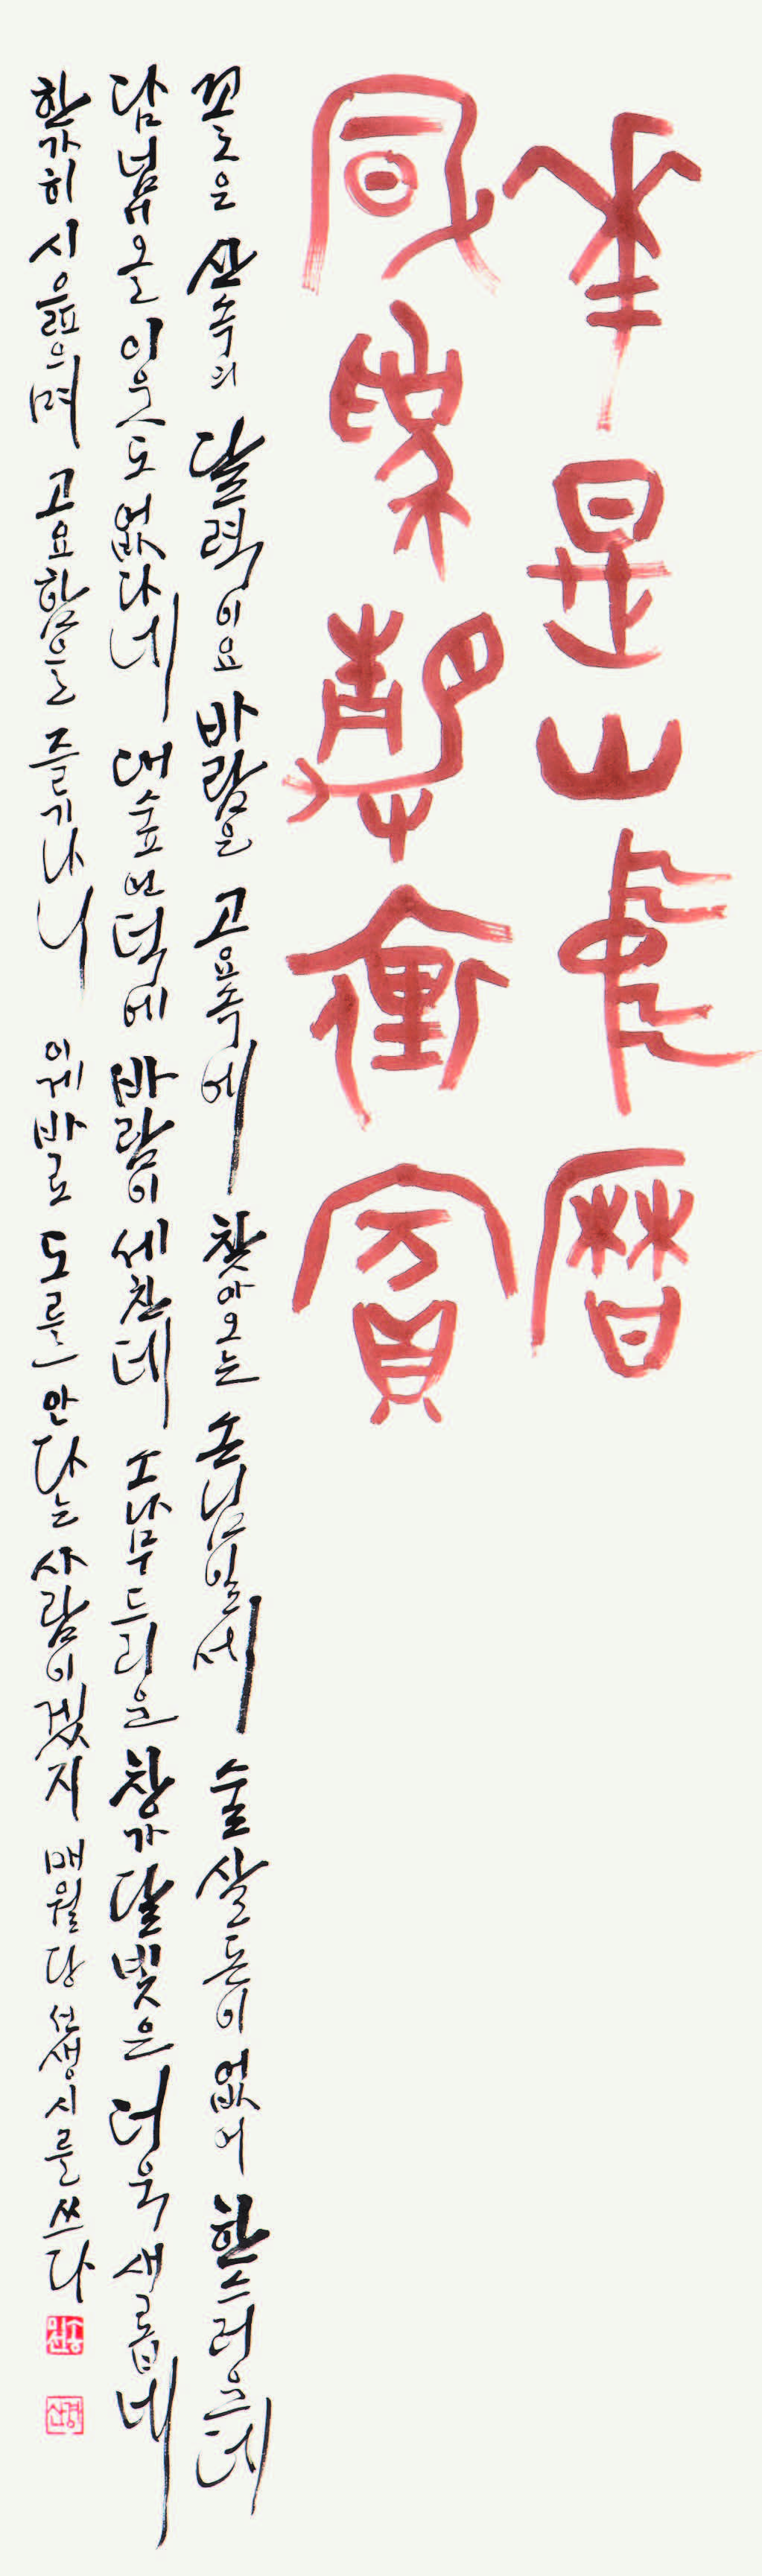 花是山中曆
風爲靜裏賓
꽃은 산속의 달력이요 바람은 고요속에 찾아오는 손님일네 술 살 돈이 없어 한스러운데
담 넘을 이웃도 없다네 대숲 언덕에 바람이 세찬데 소나무 드리운 창가 달빛은 더욱 새롭네
한가히 시 읊으며 고요함을 즐기나니 이게 바로 도를 안다는 사람이겠지 매월당 선생 시를 쓰다